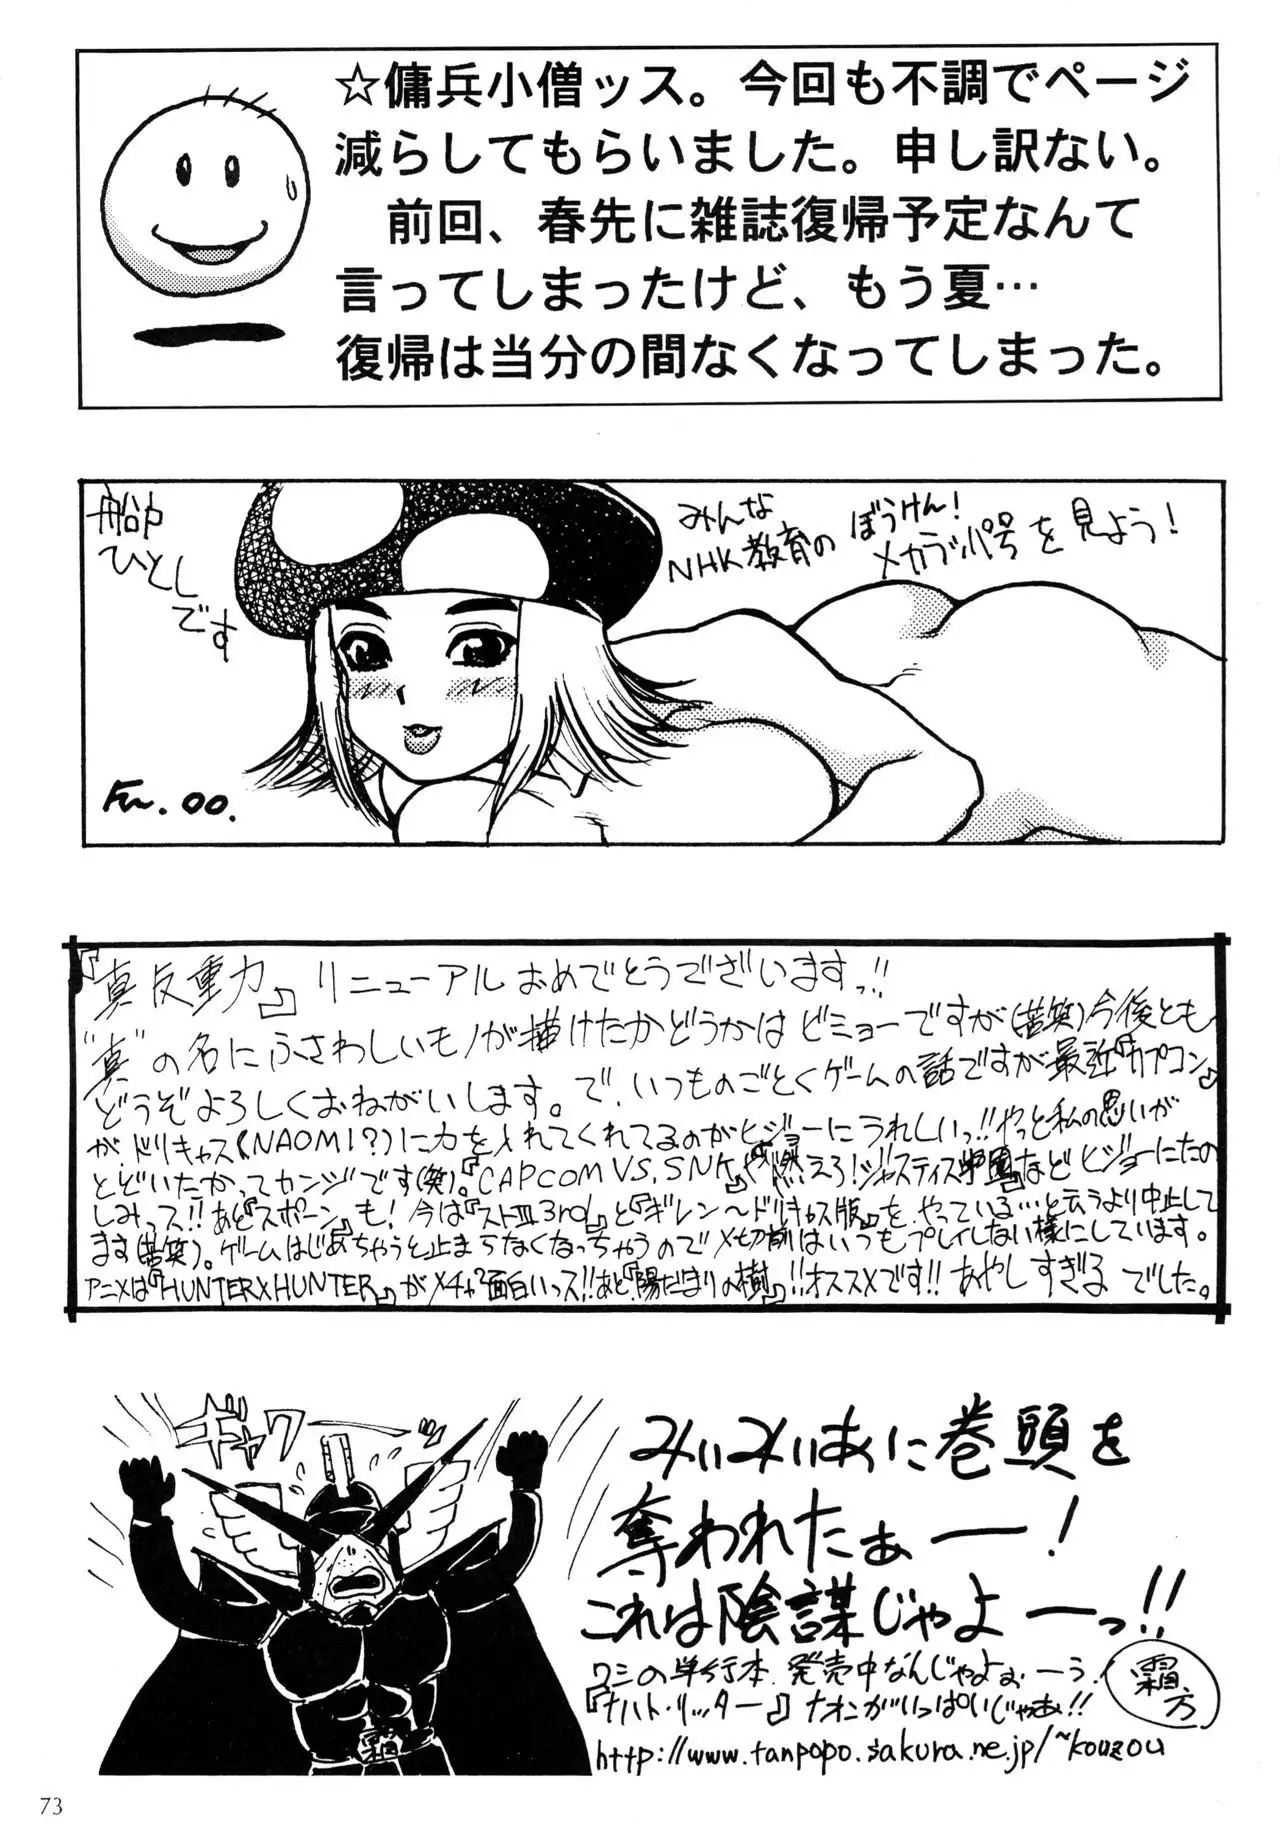 ☆傭兵小僧ッス。今回も不調でページ
減らしてもらいました。申し訳ない。
前回、春先に雑誌復帰予定なんて
言ってしまったけど、もう夏…
復帰は当分の間なくなってしまった。
船戸
ひとし
です
みんな
NHK教育の
ぼうけん!
メカラッパ号を見よう!
Fu. 00.
『真反重力』リニューアルおめでとうでございますっ!!
"真"の名にふさわしいモノが描けたかどうかはビミョーですが(苦笑)今後とも
どうぞよろしくおねがいします。で、いつものごとくゲームの話ですが最近『カプコン』
がドリキャス(NAOMI?)に力を入れてくれてるのがヒジョーにうれしいっ!!やっと私の思いが
とどいたかってカンジです(笑)。『CAPCOM VS. SNK』や『燃えろ!ジャスティス学園』などヒジョーにたの
しみっス!!あと『スポーン』も!今は『ストIII 3rd』と『ギレン〜ドリキャス版』をやっている…と云うより中止して
ます(苦笑)。ゲームはじめちゃうと止まらなくなっちゃうので〆切前はいつもプレイしない様にしています。
アニメは『HUNTER×HUNTER』がメチャ面白いっス!!あと『陽だまりの樹』!!オススメです!! あやしすぎる でした。
ギャワーッ
みぃみぃはあに巻頭を
奪われたぁー!
これは陰謀じゃよーっ!!
ワシの単行本、発売中なんじゃよぉーう!
『ナハト・リッター』ナオンがいっぱいじゃあ!!
霜方
http://www.tanpopo.sakura.ne.jp/~kouzou
霜
73